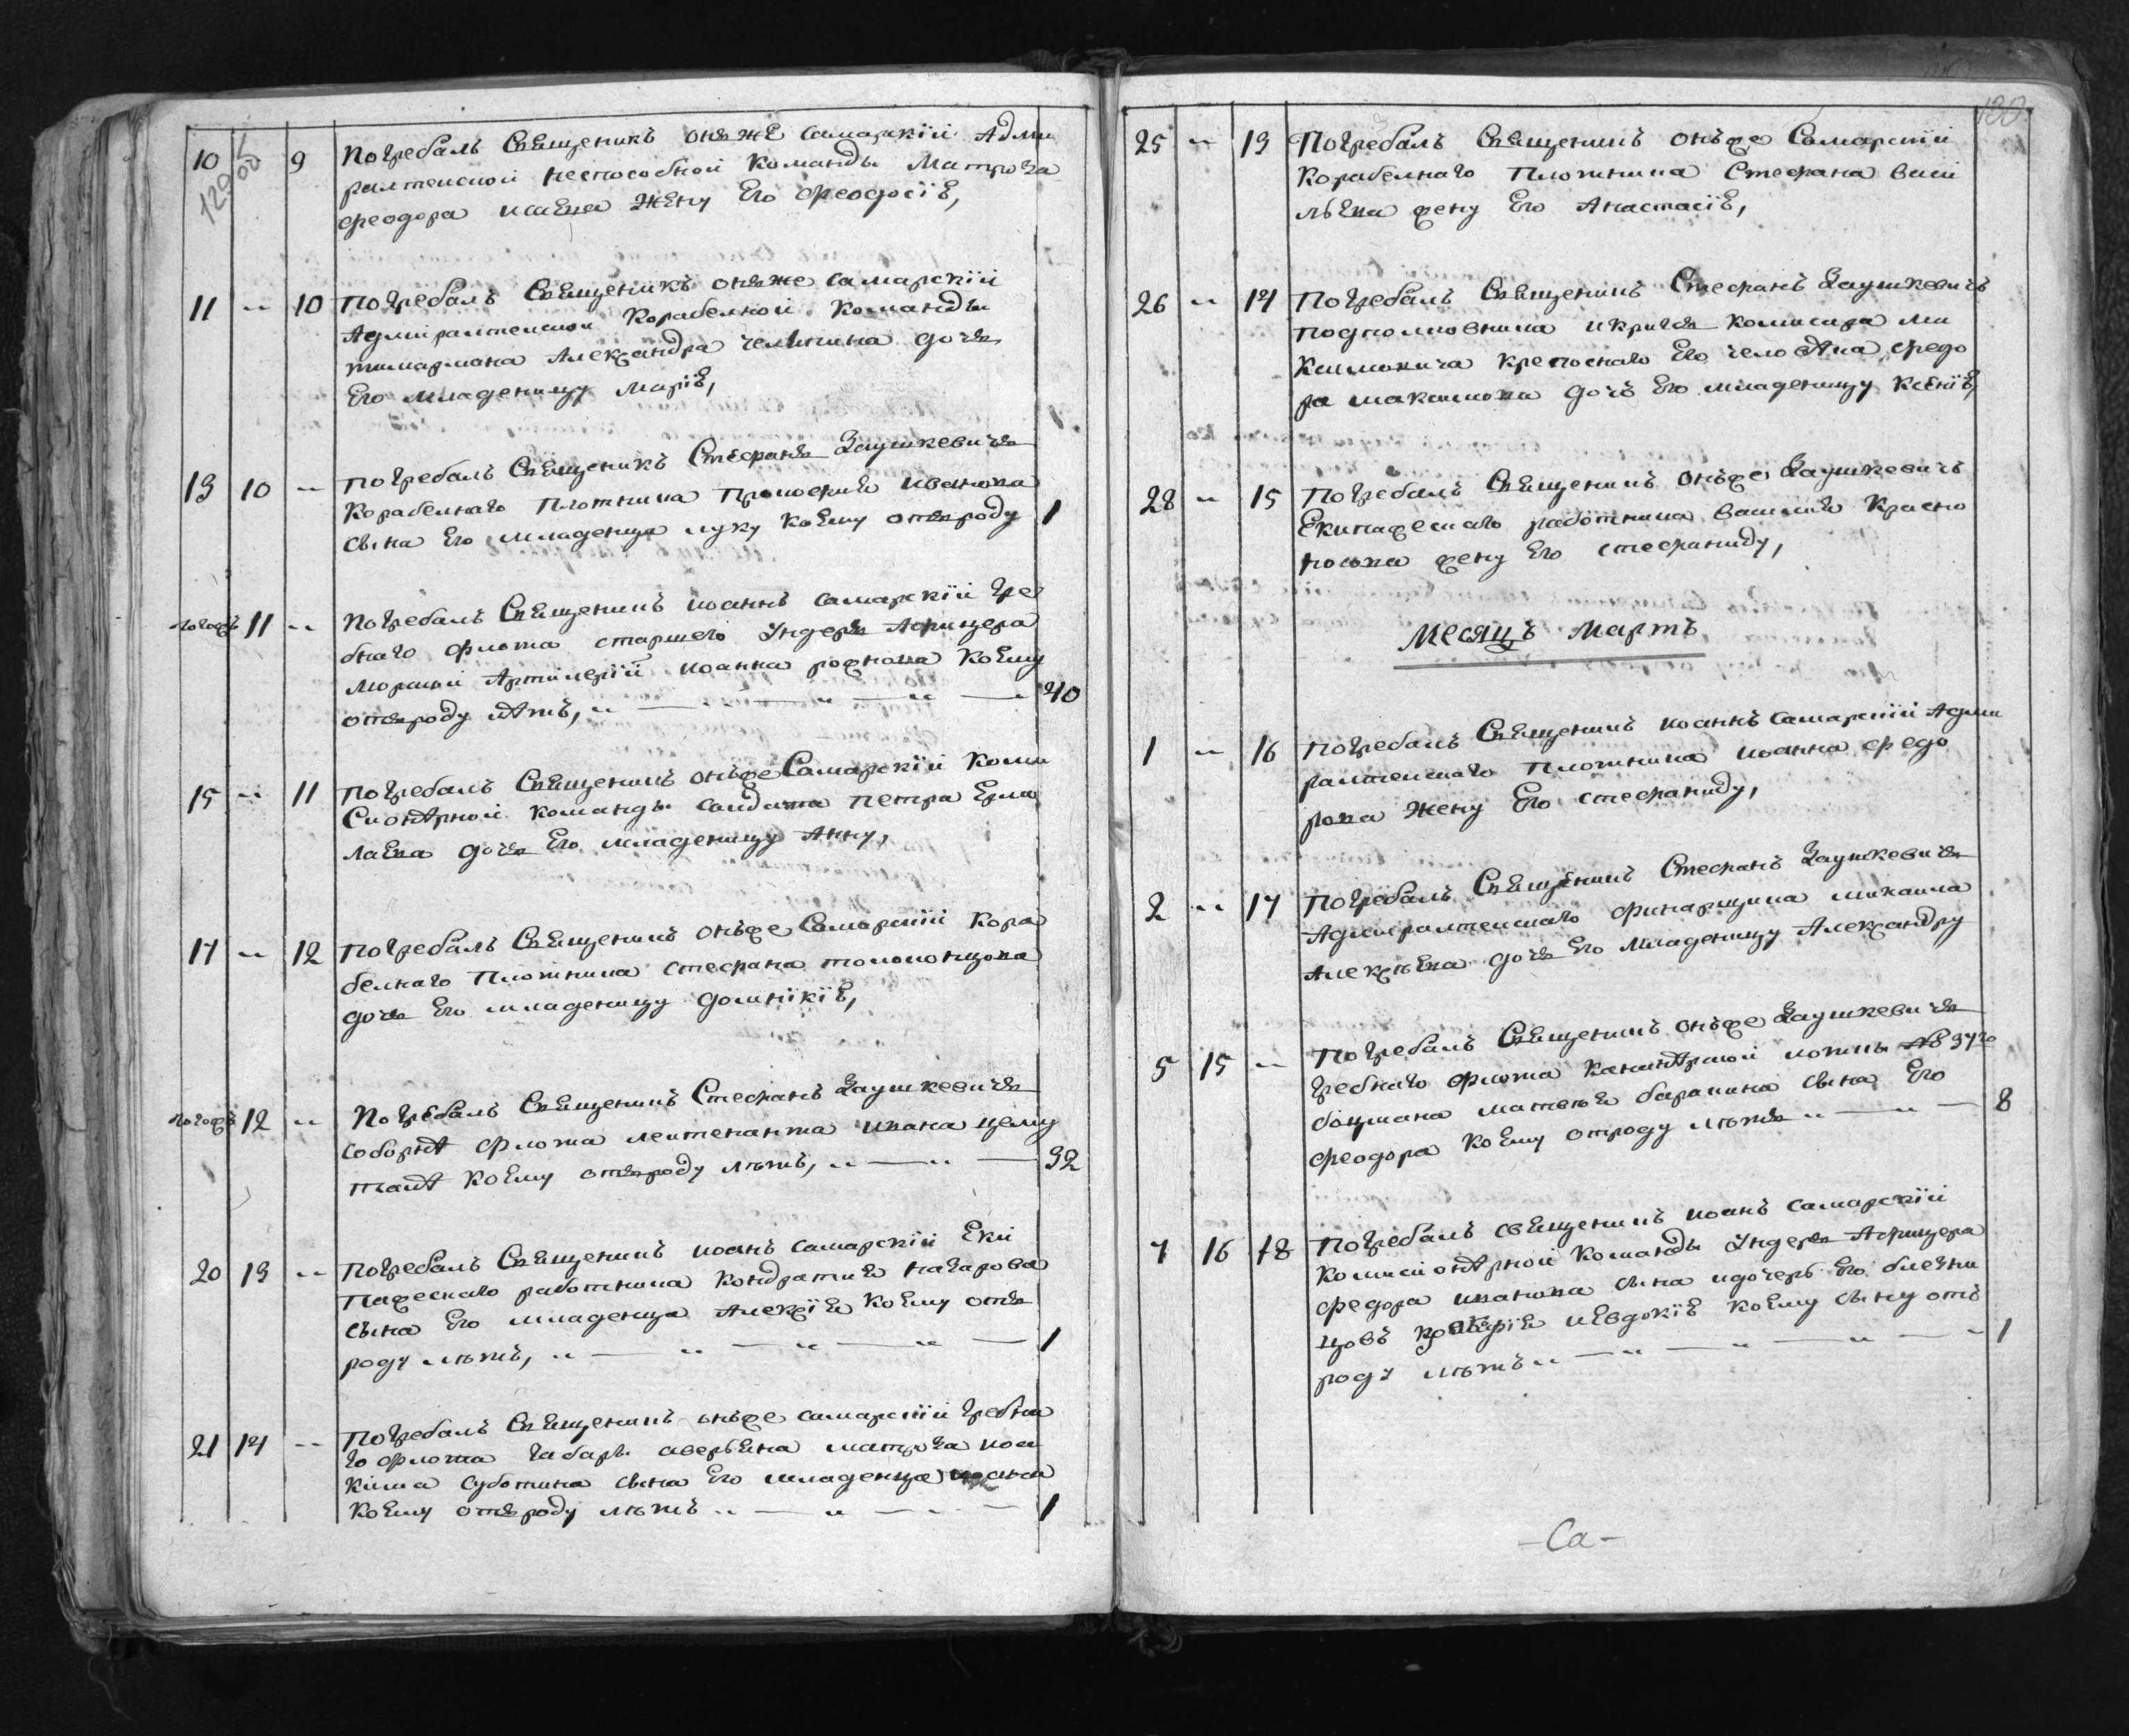 129
об
10 9 Погребалъ Священикъ онъже Самарскїй Адми
ралтейской неспособной Команды Матроза
Феодора Исаева Жену Его Феодосїю,
11 -- 10 Погребалъ Священикъ онъже Самарскїй
Адмиралтейской Корабелной Команды
тимармана Александра дочь
Его младеницу Марїю,
13 10 -- Погребалъ Священикъ Стефанъ Заушкевичъ
Корабелнаго Плотника Прокофия Иванова
сына Его младенца луку коему отъроду 1
тогожъ 11 -- Погребалъ Священикъ Иоаннъ Самарскїй Гре
бнаго флота старшего Ундеръ Афицера
Морской Артилерїи Иоанна рожнова коему
отъроду лѣтъ, -- -- -- 40
15 -- 11 Погребалъ Священикъ онъже Самарскїй Коми
Сионѣрной команды Салдата Петра Ерми
лаева дочь Его младеницу Анну,
17 -- 12 Погребалъ Священикъ онъже Самарскїй Кора
белнаго Плотника Стефана
дочь Его младеницу домникїю,
тогожъ 12 -- Погребалъ Священикъ Стефанъ Заушкевичъ
флота лейтенанта Ивана
коему отъроду лѣтъ, -- -- 32
20 13 -- Погребалъ Священикъ Иоанъ Самарскїй Еки
пажескаго работника Кондратия назарова
сына Его младенца Алексїя коему отъ
роду лѣтъ, -- -- -- -- 1
21 14 -- Погребалъ Священикъ онъже Самарскїй гребна
го флота аверьяна матроза Иоа
кима Суботина сына Его младенца Иоанна
коему отъроду лѣтъ -- -- -- 1
130
25 -- 13 Погребалъ Священикъ онъже Самарскїй
Корабелнаго Плотника Стефана Васи
льева жену Его Анастасїю,
26 -- 14 Погребалъ Священикъ Стефанъ Заушкевичъ
подполковника икригсъ комисара Ма
ксимовича крепоснаго Его человѣка Федо
ра Максимова дочь Его младеницу Ксенїю,
28 -- 15 Погребалъ Священикъ онъже Заушкевичъ
Екипажескаго работника Василия Красно
жену Его Стефаниду,
Месяцъ Мартъ
1 -- 16 Погребалъ Священикъ Иоаннъ Самарскїй Адми
ралтейскаго Плотника Иоанна Федо
рова Жену Его Стефаниду,
2 -- 17 Погребалъ Священикъ Стефанъ Заушкевичъ
Адмиралтейскаго Михаила
Алексѣева дочь Его Младеницу Александру
5 15 -- Погребалъ Священикъ онъже Заушкевичъ
гребнаго флота Канонѣрской лотки №
боцмана Матвея баранина сына Его
Феодора коему отроду лѣтъ -- -- -- 8
7 16 18 Погребалъ Священикъ Иоанъ Самарскїй
Комисионѣрной Команды Ундеръ Афицера
Федора Иванова сына идочерь Его близни
цовъ иЕвдокїю коему сыну отъ
роду лѣтъ -- -- -- -- 1
-Са-